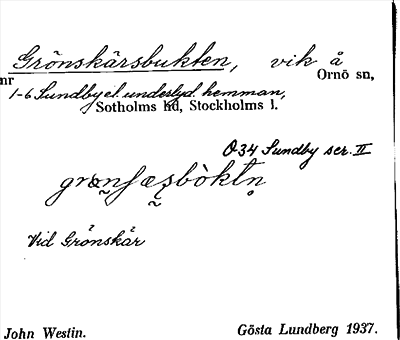 Grönskärsbukten, vik å
nr Ornö sn,
1-6 Sundby el. underlyd. hemman,
Sotholms hd, Stockholms l.
Ö34 Sundby ser. II
Vid Grönskär
John Westin. Gösta Lundberg 1937.